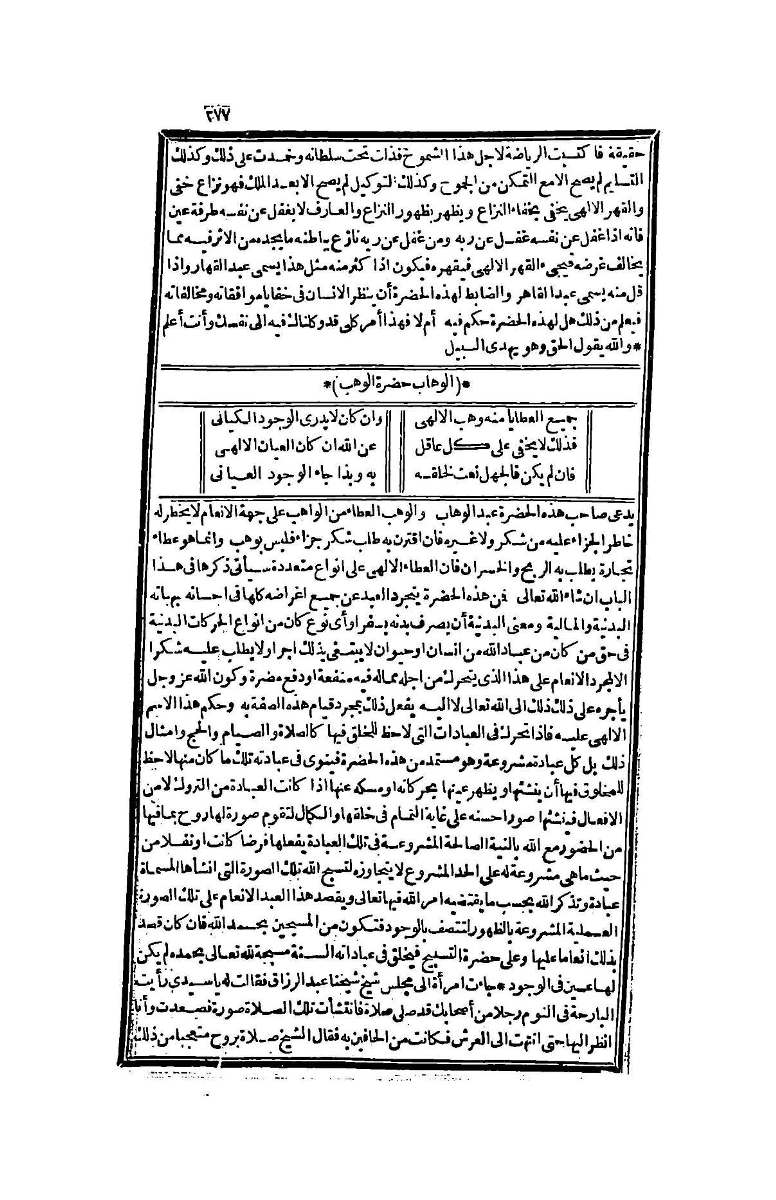 ٢٧٧
حقيقة فاكتسبت الرياضة لاجل هذا الشموخ فذلت تحت سلطانه وحمدت على ذلك وكذلك
التسليم لم يصح الامع التمكن من الجموح وكذلك التوكيل لم يصح الابعد الملك فهو نزاع خفى
والقهر الالهى يخفى بخفاء النزاع ويظهر بظهور النزاع والعارف لا يغفل عن نفسه طرفة عين
فانه اذا غفل عن نفسه غفل عن ربه ومن غفل عن ربه نازع بباطنه ما يجده من الاثر فيه مما
يخالف غرضه فيجىء القهر الالهى فيقهره فيكون اذا كثر منه مثل هذا يسمى عبد القهار واذا
قل منه يسمى عبد القاهر والضابط لهذه الحضرة أن ينظر الانسان فى خفايا موافقاته ومخالفاته
فيعلم من ذلك هل لهذه الحضرة حكم فيه أم لا فهذا أمر كلى قد وكلناك فيه الى نفسك وأنت أعلم
* والله يقول الحق وهو يهدى السبيل
* (الوهاب حضرة الوهب) *
جميع العطايا منه وهب الالهى وان كان لا يدرى الوجود الكيانى
فذلك لا يخفى على كل عاقل عن الله ان كان العيان الالهى
فان لم يكن فالجهل نعت لخلقه به وبذا جاء الوجود العيانى
يدعى صاحب هذه الحضرة عبد الوهاب والوهب العطاء من الواهب على جهة الانعام لا يخطر له
خاطر الجزاء عليه من شكر ولا غيره فان اقترن به طلب شكر جزاء فليس بوهب وانما هو عطاء
تجارة يطلب به الربح والخسران فان العطاء الالهى على انواع متعددة سيأتى ذكرها فى هذا
الباب ان شاء الله تعالى فمن هذه الحضرة يتجرد العبد عن جميع اغراضه كلها فى احسانه بهباته
البدنية والمالية ومعنى البدنية أن يصرف بدنه بسفر او أى نوع كان من انواع الحركات البدنية
فى حق من كان من عباد الله من انسان او حيوان لا يبتغى بذلك اجرا ولا يطلب عليه شكرا
الا لمجرد الانعام على هذا الذى يتحرك من اجله مما له فيه منفعة او دفع مضرة وكون الله عز وجل
يأجره على ذلك ذلك الى الله تعالى لا اليه يفعل ذلك بمجرد قيام هذه الصفة به وحكم هذا الاسم
الالهى عليه فاذا تحرك فى العبادات التى لاحظ للخلق فيها كالصلاة والصيام والحج وامثال
ذلك بل كل عبادة مشروعة وهو مستمد من هذه الحضرة فينوى فى عبادته تلك ما كان منها لاحظ
للمخلوق فيها أن ينشئها ويظهر عينها بحركاته او مسكه عنها اذا كانت العبادة من التروك لا من
الافعال فينشئها صورا حسنه على غاية التمام فى خلقها والكمال لتقوم صورة لها روح بما فيها
من الحضور مع الله بالنية الصالحة المشروعة فى تلك العبادة يفعلها فرضا كانت او نفلا من
حيث ما هى مشروعة له على الحد المشروع لا يتجاوزه لتسبح الله تلك الصورة التى انشأها المسماة
عبادة وتذكر الله بحسب ما يقتضيه امر الله فيها تعالى ويقصد هذا العبد الانعام على تلك الصورة
العملية المشروعة بالظهور لتتصف بالوجود فتكون من المسبحين بحمد الله فان كان قصد
بذلك انعاما عليها وعلى حضرة التسبيح فيخلق فى عباداته السنة مسبحة لله تعالى بحمده لم يكن
لها عين فى الوجود * جاءت امرأة الى مجلس شيخ شيخنا عبد الرزاق فقالت له يا سيدى رأيت
البارحة فى النوم رجلا من أصحابك قد صلى صلاة فانتشأت تلك الصلاة صورة فصعدت وأنا
انظر اليها حتى انتهت الى العرش فكانت من الحافين به فقال الشيخ صلاة بروح متعجبا من ذلك